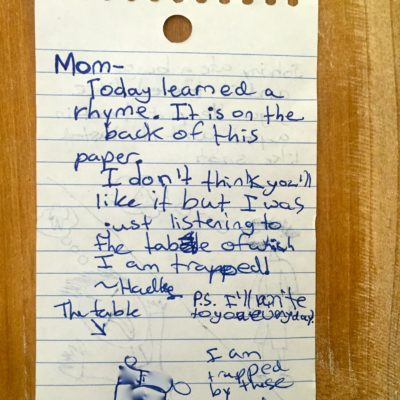 Mom-
Today learned a
rhyme. It is on the
back of this
paper.
I don't think you'll
like it but I was
just listening to
the table of which
I am trapped!
P.S. I'll write
to you everyday.
The table
I am
trapped
by these